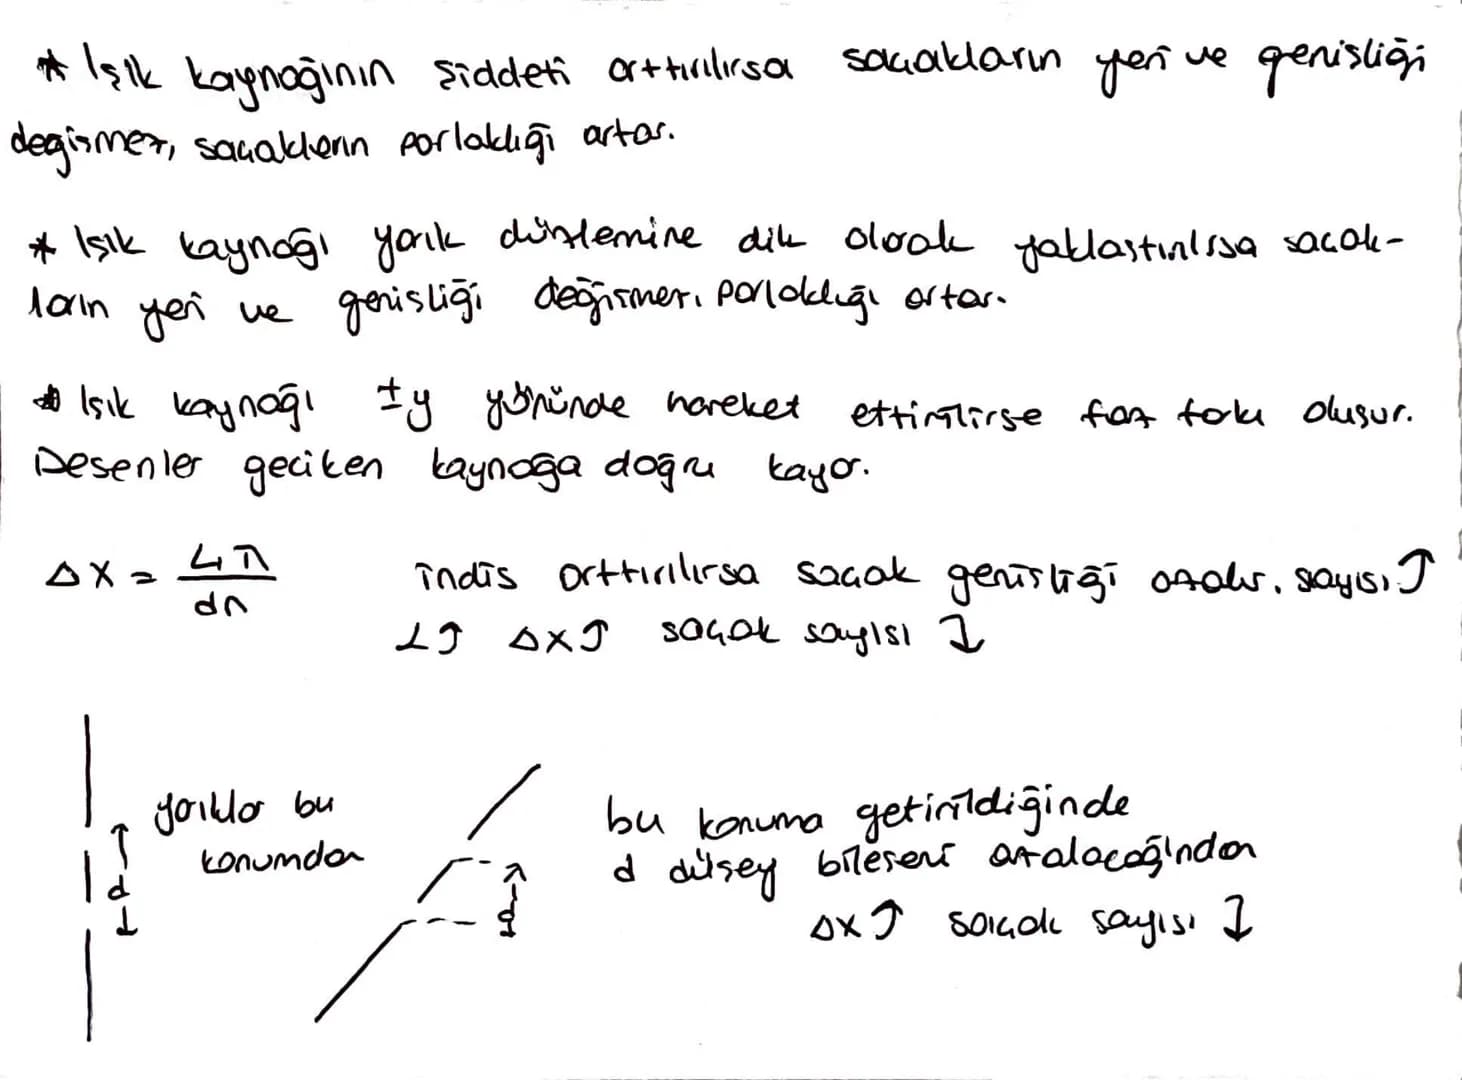 * Işık kaynağının şiddeti arttırılırsa saçakların yeri ve genişliği
değişmez, saçakların parlaklığı artar.
* Işık kaynağı yarık düzlemine dik olarak yaklaştırılırsa saçak-
ların yeri ve genişliği değişmez, parlaklığı artar.
* Işık kaynağı ±y yönünde hareket ettirilirse faz farkı oluşur.
Desenler geciken kaynağa doğru kayar.
Δx = Lλ / dn
indis arttırılırsa saçak genişliği azalır, sayısı ↑
L↑ Δx↑ saçak sayısı ↓
yarıklar bu
konumdan
d
d
bu konuma getirildiğinde
d düşey bileşeni azalacağından
Δx ↑ saçak sayısı ↓